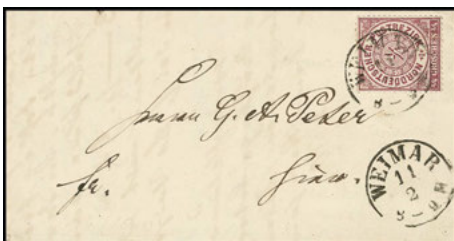 NORDDEUTSCHER POSTBEZIRK
Herrn G. A. Peter
fr. hier.
WEIMAR
11
2
8 - 9